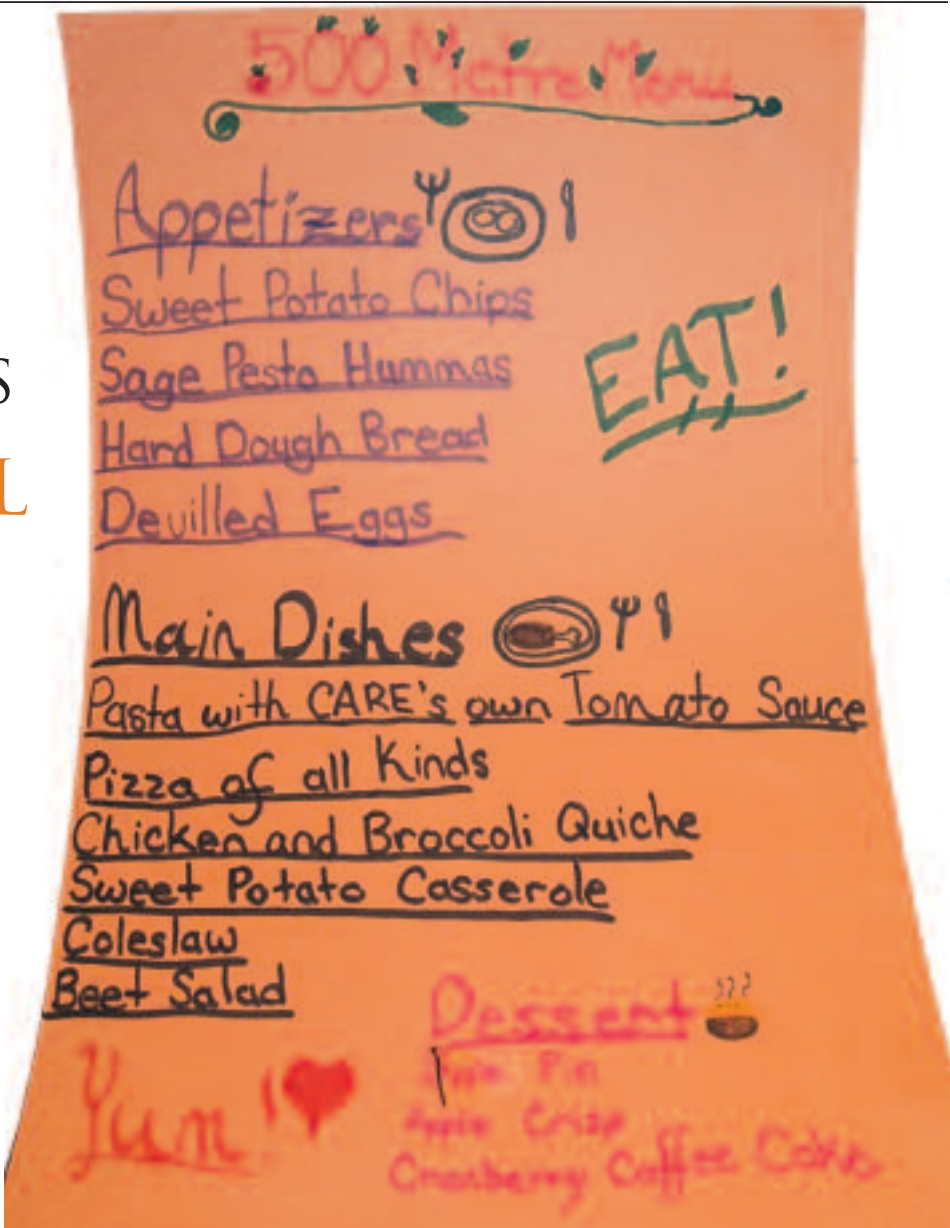 500 Metre Menu
Appetizers
Sweet Potato Chips
Sage Pesto Hummas
EAT!
Hard Dough Bread
Devilled Eggs
S
L
Main Dishes
Pasta with CARE's own Tomato Sauce
Pizza of all Kinds
Chicken and Broccoli Quiche
Sweet Potato Casserole
Coleslaw
Beet Salad
Dessert
Yum!
Apple
Apple Crisp
Cranberry Coffee Cake